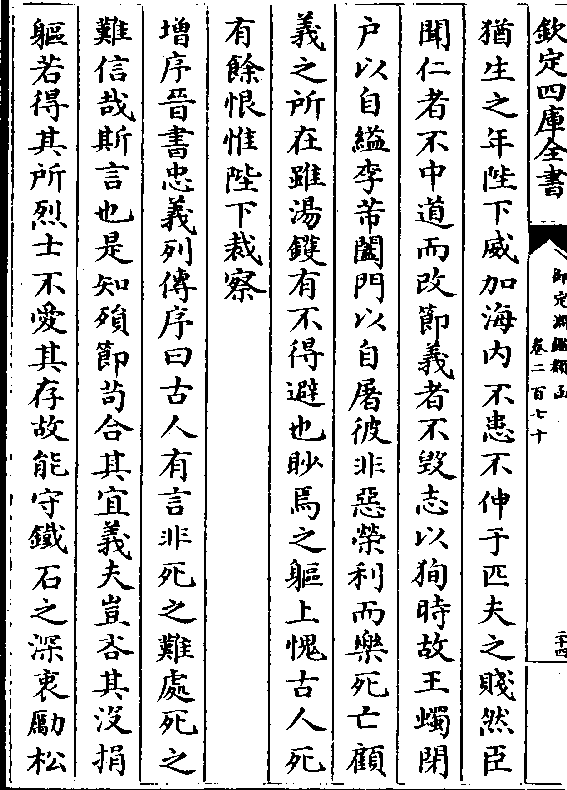 欽定四庫全書
御定淵鑑類函
卷二百七十
二十四
猶生之年陛下威加海内不患不伸于匹夫之賤然臣
聞仁者不中道而改節義者不毁志以狥時故王蠋閉
户以自縊李芾闔門以自屠彼非惡榮利而樂死亡顧
義之所在雖湯鑊有不得避也眇焉之軀上愧古人死
有餘恨惟陛下裁察
增序晉書忠義列傳序曰古人有言非死之難處死之
難信哉斯言也是知殞節苟合其宜義夫豈吝其没捐
軀若得其所烈士不愛其存故能守鐵石之深衷勵松